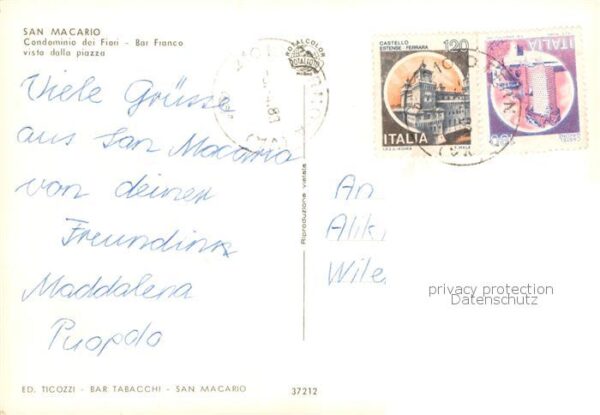 SAN MACARIO
Condominio dei Fiori - Bar Franco
vista dalla piazza
ROTALCOLOR
ROTALFOTO
MILANO
CASTELLO
ESTENSE FERRARA
120
ITALIA
ITALIA
Viele Grüsse
aus San Macario
von deiner
Freundinn
Maddalena
Puopolo
Riproduzione vietata
An
Alik
Wile
privacy protection
Datenschutz
ED. TICOZZI - BAR TABACCHI - SAN MACARIO
37212